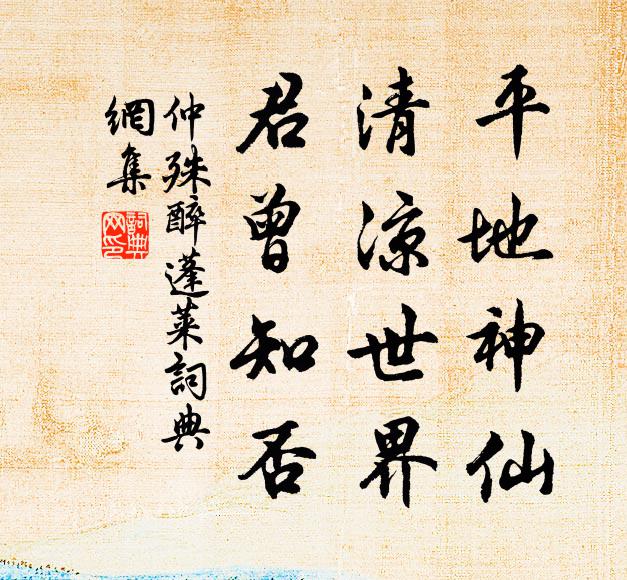 平地神仙
清凉世界
君曾知否
仲殊醉蓬莱詞典
網集
詞典网印